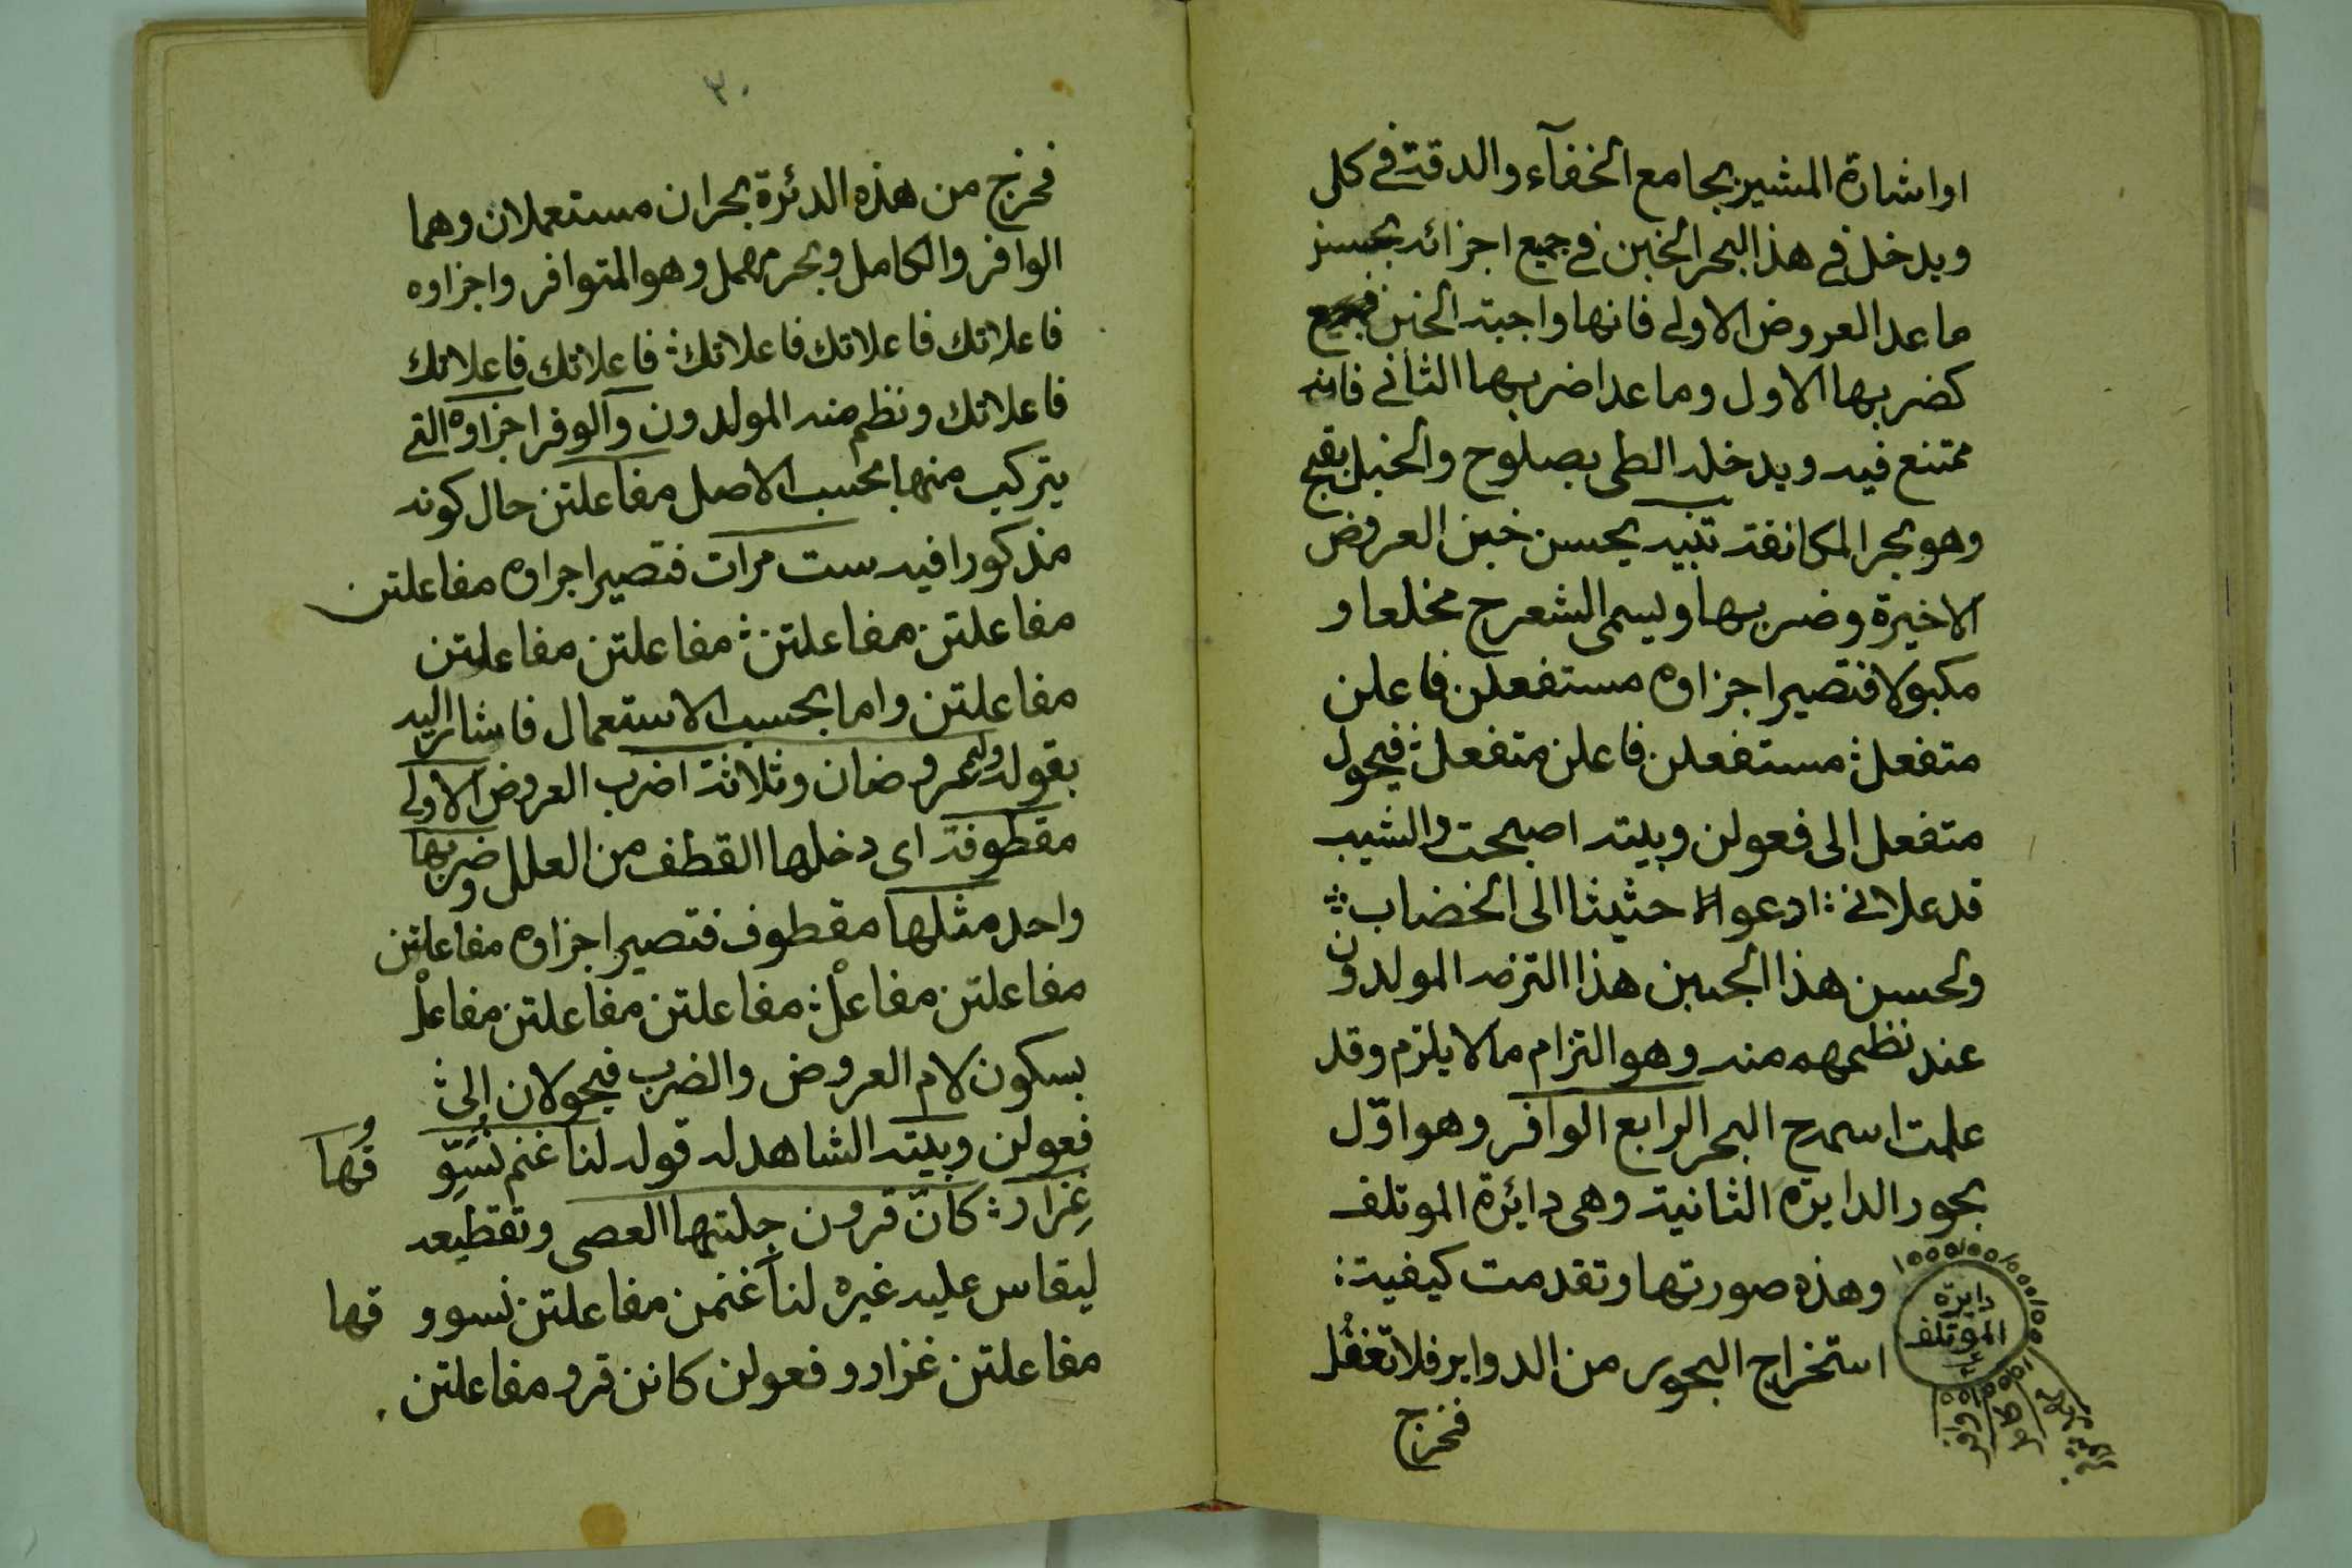 او اشارة المشيز بجامع الخفآء والدقة في كل
ويدخل في هذا البحر الخبن في جميع اجزائه بحسن
ما عدا العروض الاولى فانها واجبة الخبن
كضربها الاول وما عدا ضربها الثانى فانه
ممتنع فيه ويدخله الطى بصلوح والخبل بقبح
وهو بحر المكانفة تنبيه يحسن خبن العروض
الاخيرة وضربها ويسمى الشعر ح مخلعا و
مكبولا فتصير اجزاوه مستفعلن فاعلن
متفعل : مستفعلن فاعلن متفعل : فيحول
متفعل الى فعولن وبيته اصبحت والشيب
قد علانى : ادعوا حثيثا الى الخضاب :
ولحسن هذا الجبين هذا التزمه المولدون
عند نظمهم منه وهو التزام مالا يلزم وقد
علمت اسمه ح البحر الرابع الوافر وهو اوّل
بحور الدايره الثانية وهى دائرة الموتلف
وهذه صورتها وتقدمت كيفية :
استخراج البحور من الدواير فلا تغفُل
فخرج
دايره
الموتلف
وافر
٣٠
فخرج من هذه الدئرة بحران مستعملان وهما
الوافر والكامل وبحر مهمل وهو المتوافر واجزاوه
فاعلاتك فاعلاتك فاعلاتك : فاعلاتك فاعلاتك
فاعلاتك ونظم منه المولدون وآلوفر اجزاوه التى
يتركيب منها بحسب الاصل مفاعلتن حال كونه
مذكورا فيه ست مرات فتصير اجراوه مفاعلتن
مفاعلتن مفاعلتن : مفاعلتن مفاعلتن
مفاعلتن واما بحسب الاستعمال فاشار اليه
بقوله وله عروضان وثلاثة اضرب العروض الاولى
مقطوفة اى دخلها القطف من العلل وضربها
واحد مثلها مقطوف فتصير اجزاوه مفاعلتن
مفاعلتن مفاعلْ : مفاعلتن مفاعلتن مفاعلْ
بسكون لام العروض والضرب فيحولان الى :
فعولن وبيته الشاهد له قوله لنا غنم نُسَوِّ قُهَا
غِزار : كانّ قرون جلتها العصى وتقطيعه
ليقاس عليه غيره لنا غنمن مفاعلتن نسوو قها
مفاعلتن غزارو فعولن كانن قرو مفاعلتن